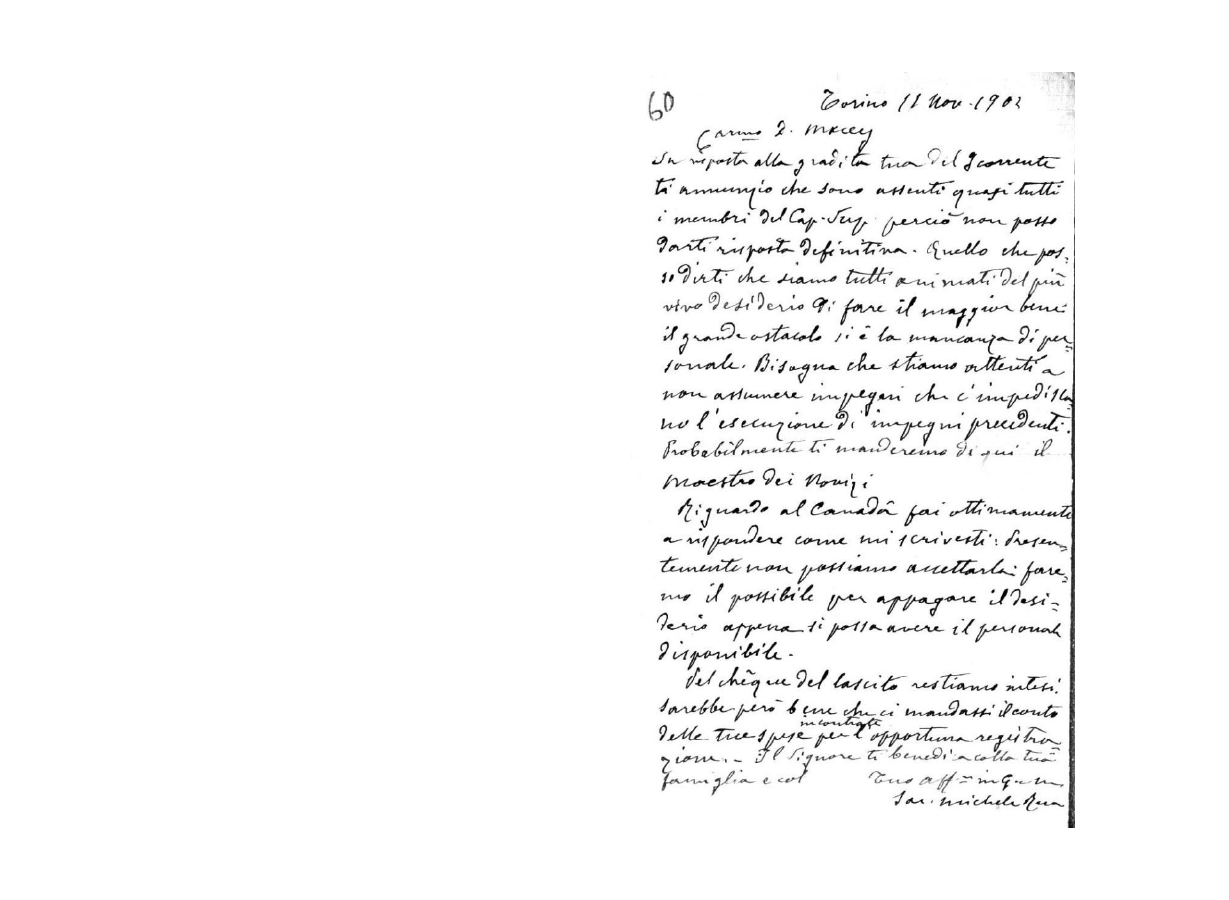 60
Torino 11 Nov. 1902
Carmo D. Macey
In risposta alla gradita tua del 3 corrente
ti annunzio che sono assenti quasi tutti
i membri del Cap. Sup. perciò non posso
darti risposta definitiva. Quello che pos-
so dirti che siamo tutti animati del più
vivo desiderio di fare il maggior bene
il grande ostacolo si è la mancanza di per-
sonale. Bisogna che stiamo attenti a
non assumere impegni che c'impedisca-
no l'esecuzione di impegni precedenti.
Probabilmente ti manderemo di qui il
Maestro dei Novizi
Riguardo al Canadà fai ottimamente
a rispondere come mi scrivesti: Presen-
temente non possiamo accettarla: fare-
mo il possibile per appagare il desi-
derio appena si possa avere il personale
disponibile.
Del chêque del lascito restiamo intesi.
Sarebbe però bene che ci mandassi il conto
incontrate
delle tue spese per l'opportuna registra-
zione. - Il Signore ti benedica colla tua
famiglia e col Tuo aff. in G. e M.
Sac. Michele Rua